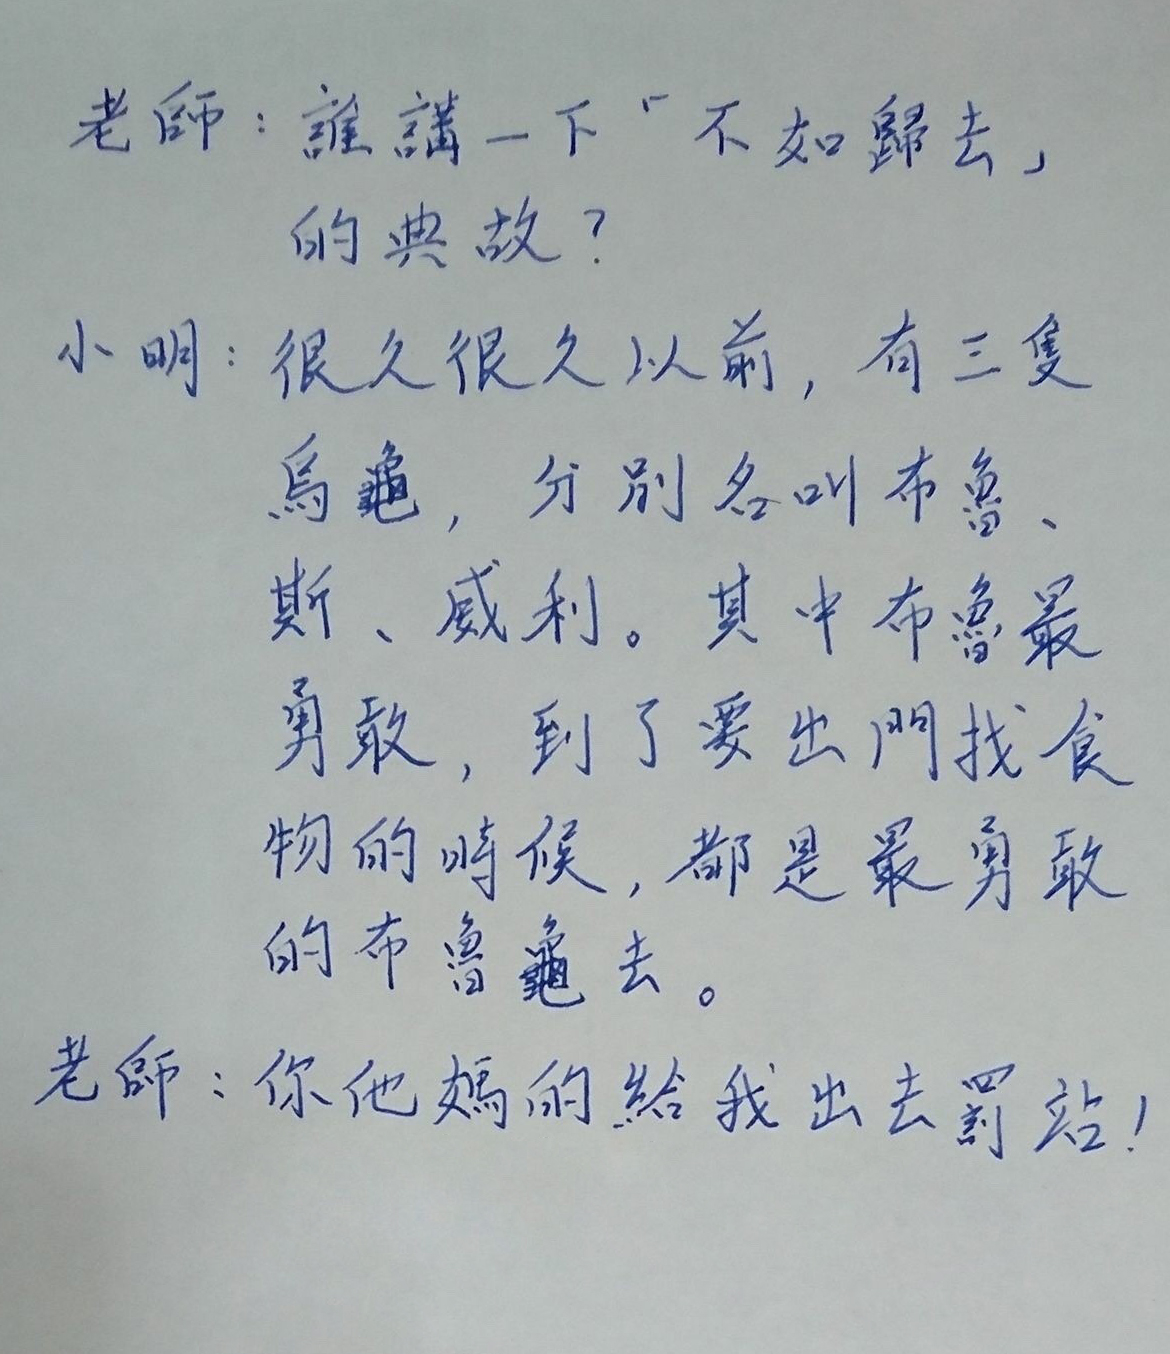 老師：誰講一下「不如歸去」
的典故？
小明：很久很久以前，有三隻
烏龜，分別名叫布魯、
斯、威利。其中布魯最
勇敢，到了要出門找食
物的時候，都是最勇敢
的布魯龜去。
老師：你他媽的給我出去罰站！